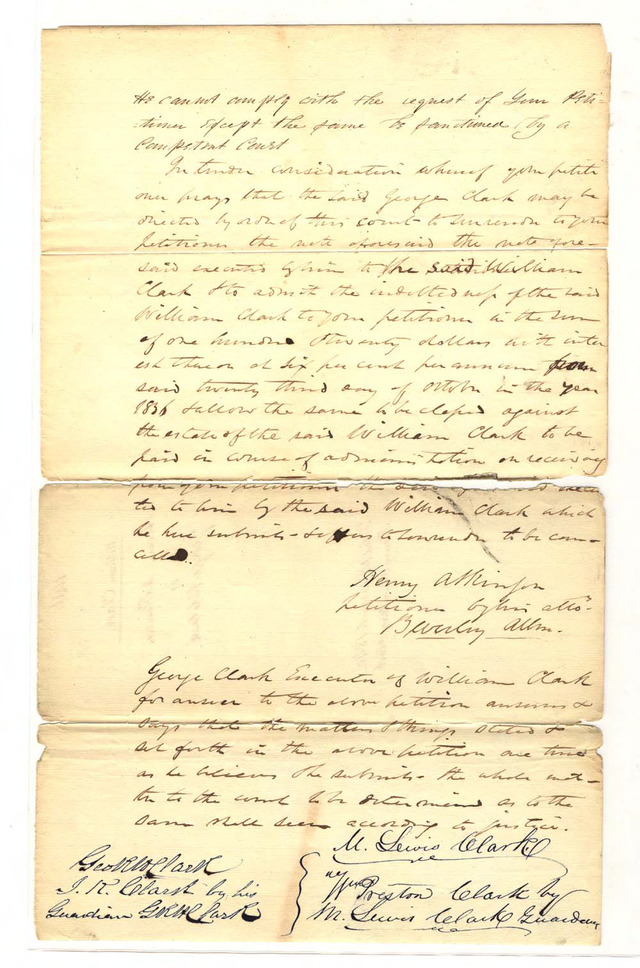 He cannot comply with the request of your Peti-
tioner except the same be sanctioned by a
Competent Court
In tender consideration whereof your petiti
oner prays that the said George Clark may be
directed by order of this court to surrender to your
petitioner the note aforesaid the note afore-
said executed by him to the said William
Clark & to admit the indebtedness of the said
William Clark to your petitioner in the sum
of one hundred & twenty dollars with inter
est thereon at six per cent per annum from
said twenty third day of October in the year
1836 & allow the same to be classed against
the estate of the said William Clark to be
paid in course of administration on receiving
from your petitioner the
ted to him by the said William Clark which
he here submits & offers to surrender to be can-
celled.
Henry Atkinson
petitioner by his atto
Beverly Allen.
George Clark Executor of William Clark
for answer to the above petition answers &
says that the matters & things stated &
set forth in the above petition are true
as he believes & he submits the whole mat-
ter to the court to be determined as to the
same shall seem according to justice.
M. Lewis Clark
Geo R H Clark
J. K. Clark by his
Guardian G R H Clark
Wm Preston Clark by
M. Lewis Clark Guardian